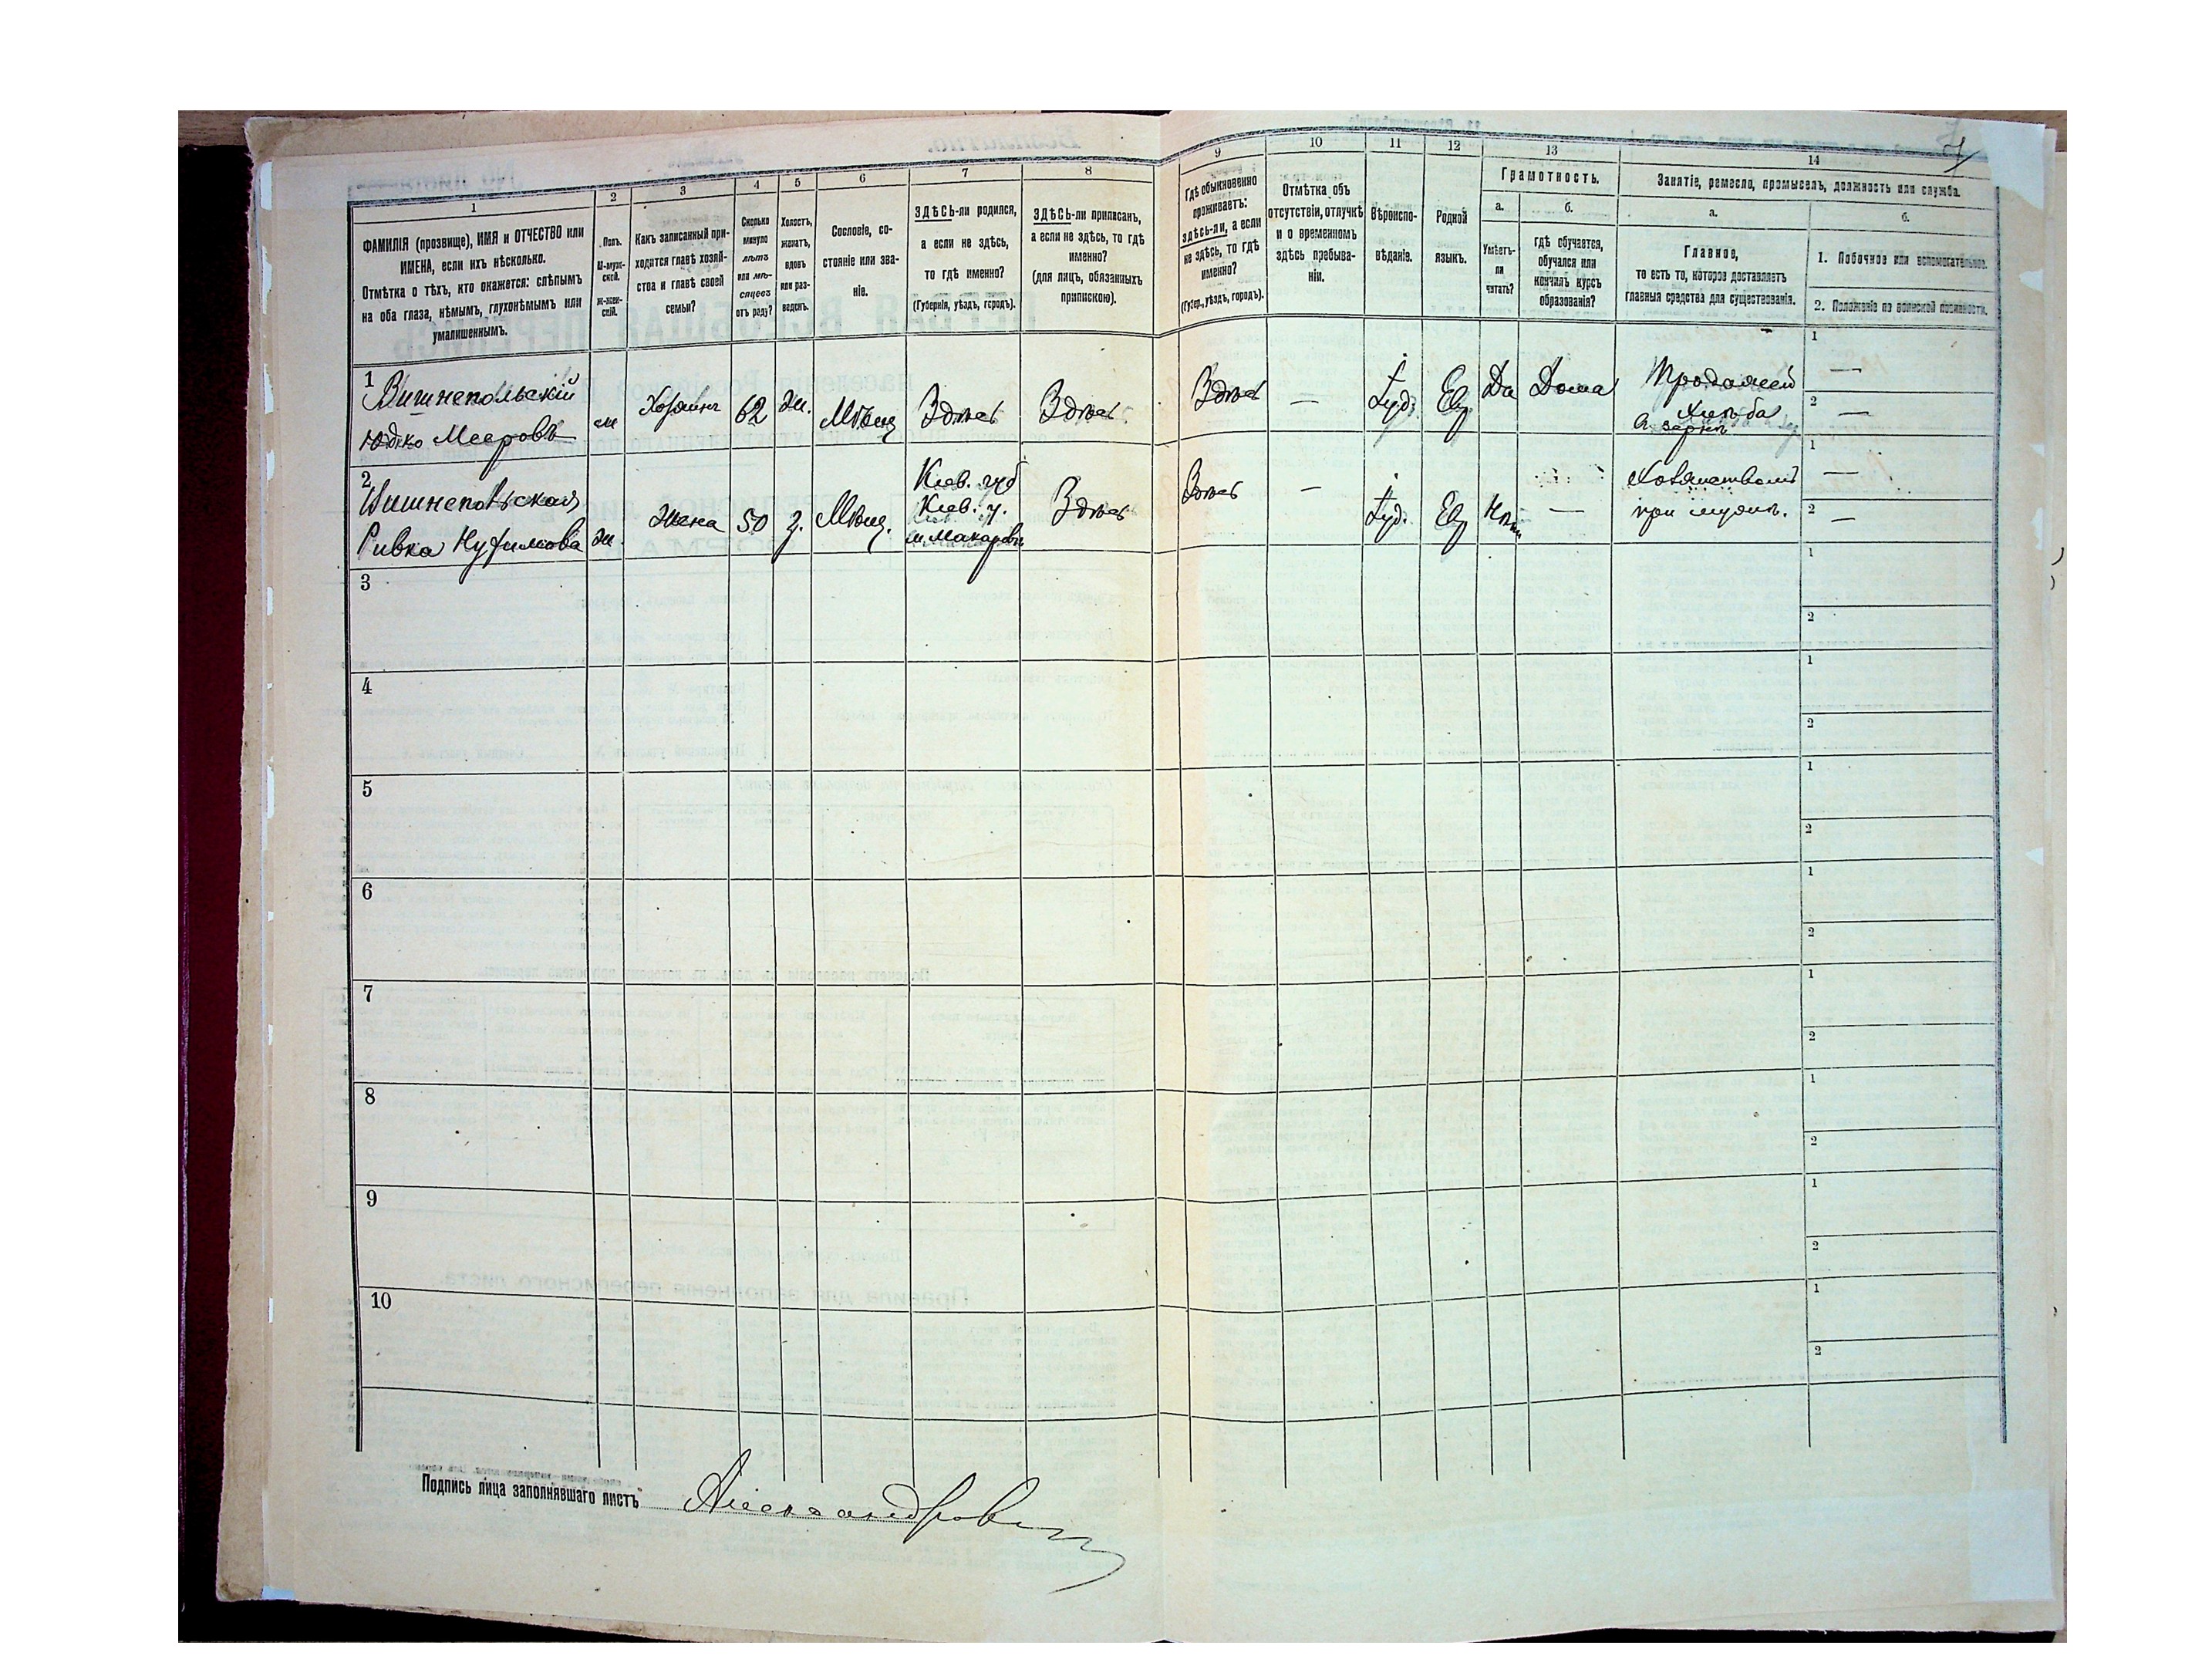 7
1
2
3
4
5
6
7
8
9
10
11
12
13
14
ФАМИЛІЯ (прозвище), ИМЯ и ОТЧЕСТВО или
ИМЕНА, если ихъ нѣсколько.
Отмѣтка о тѣхъ, кто окажется: слѣпымъ
на оба глаза, нѣмымъ, глухонѣмымъ или
умалишеннымъ.
Полъ.
М-муж-
ской.
Ж-жен-
скій.
Какъ записанный при-
ходится главѣ хозяй-
ства и главѣ своей
семьи?
Сколько
минуло
лѣтъ
или мѣ-
сяцевъ
отъ роду?
Холостъ,
женатъ,
вдовъ
или раз-
веденъ.
Сословіе, со-
стояніе или зва-
ніе.
ЗДѢСЬ-ли родился,
а если не здѣсь,
то гдѣ именно?
(Губернія, уѣздъ, городъ).
ЗДѢСЬ-ли приписанъ,
а если не здѣсь, то гдѣ
именно?
(для лицъ, обязанныхъ
припискою).
Гдѣ обыкновенно
проживаетъ:
здѣсь-ли, а если
не здѣсь, то гдѣ
именно?
(Губер., уѣздъ, городъ).
Отмѣтка объ
отсутствіи, отлучкѣ
и о временномъ
здѣсь пребыва-
ніи.
Вѣроиспо-
вѣданіе.
Родной
языкъ.
Грамотность.
а.
Умѣетъ-
ли
читать?
б.
гдѣ обучается,
обучался или
кончилъ курсъ
образованія?
Занятіе, ремесло, промыселъ, должность или служба.
а.
Главное,
то есть то, которое доставляетъ
главныя средства для существованія.
б.
1. Побочное или вспомогательное.
2. Положеніе по воинской повинности.
1
Вишнепольскій
Юдко Мееровъ
м
Хозяинъ
62
ж.
Мѣщ
Здѣсь
Здѣсь
Здѣсь
—
Іуд.
Евр
Да
Дома
Продажей
хлѣба
в зернѣ
1
—
2
—
2
Вишнепольская
Ривка Нухимова
ж.
Жена
50
з.
Мѣщ.
Кіев. губ
Кіев. у.
м. Макаровъ
Здѣсь
Здѣсь
—
Іуд.
Евр
Нѣтъ
—
Хозяйствомъ
при мужѣ.
1
—
2
—
3
1
2
4
1
2
5
1
2
6
1
2
7
1
2
8
1
2
9
1
2
10
1
2
Подпись лица заполнявшаго листъ
Александрович